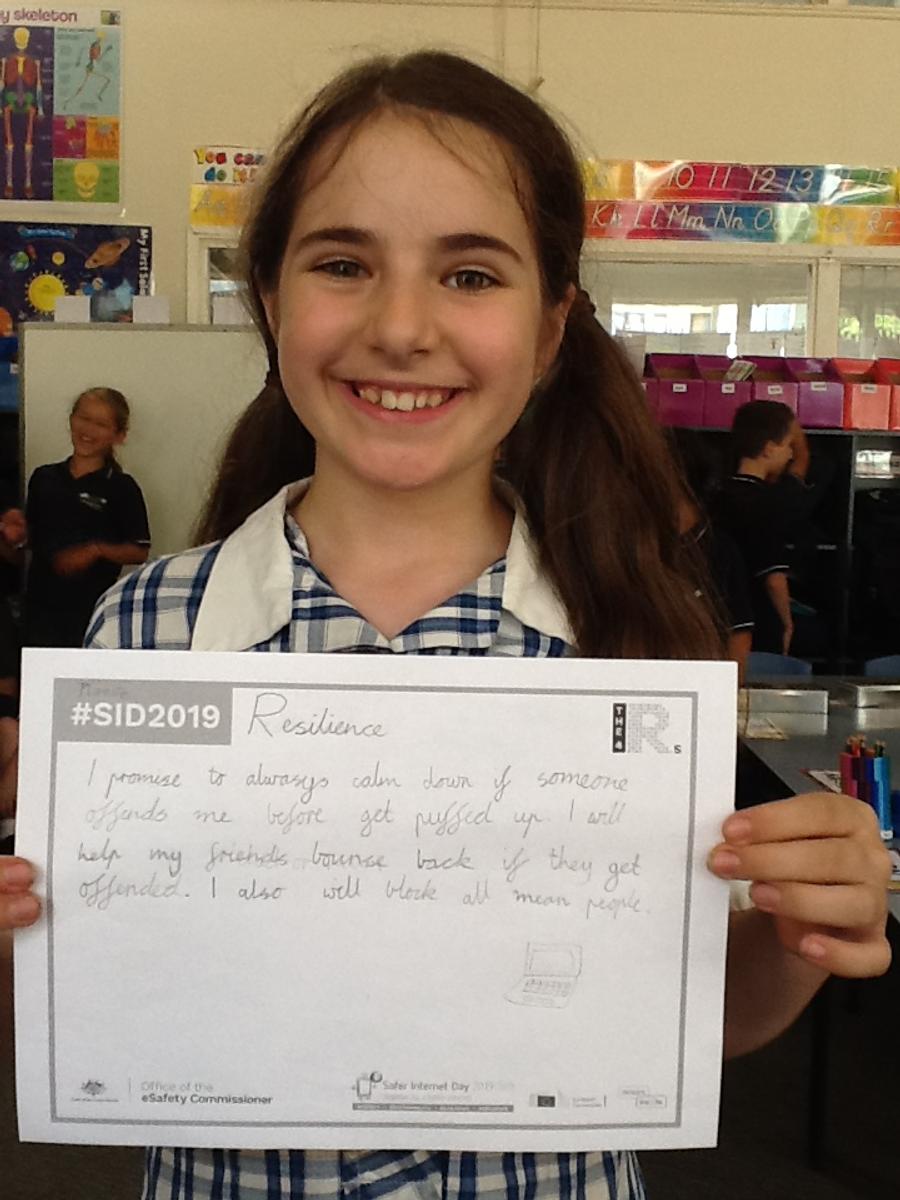 y skeleton
You can
do it
10 11 12 13
Kk Ll Mm Nn
My First
#SID2019
Resilience
THE 4
R
s
I promise to alwasys calm down if someone
offends me before get puffed up. I will
help my friends bounse back if they get
offended. I also will block all mean people.
Office of the
eSafety Commissioner
Safer Internet Day 2019